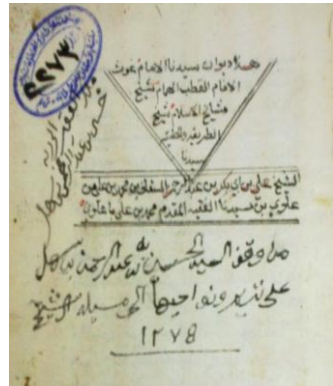 هذا ديوان سيدنا الامام غوث
الانام القطب الهمام شيخ
مشايخ الاسلام شيخ
الطريقة والحقيقة
سيدنا
الشيخ علي بن ابي بكر بن عبد الرحمن السقاف بن محمد بن علي بن
علوي بن سيدنا الفقيه المقدم محمد بن علي باعلوي
مما وقف السيد الحسين بن عبد الرحمن بن سهل
على تريم ونواحيها الى
١٢٧٨
٢٢٧٣